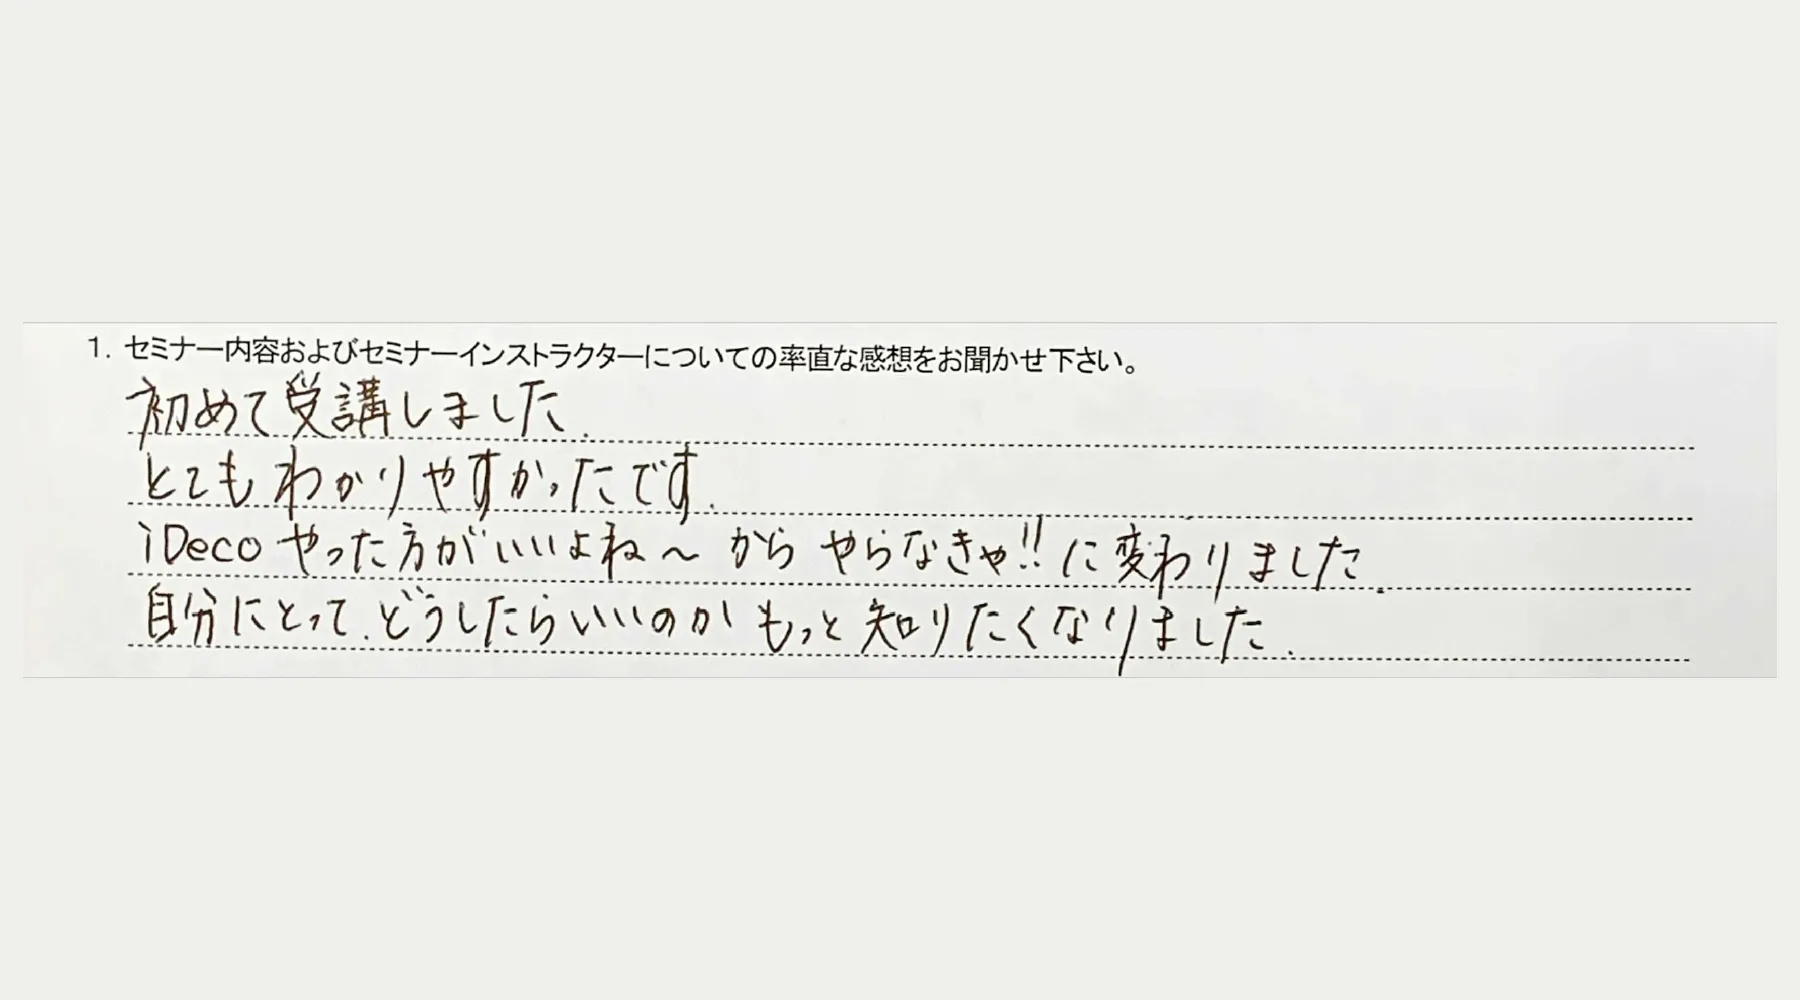 1. セミナー内容およびセミナーインストラクターについての率直な感想をお聞かせ下さい。
初めて受講しました.
とてもわかりやすかったです.
iDeco やった方がいいよね〜 から やらなきゃ!! に変わりました.
自分にとって.どうしたらいいのか もっと知りたくなりました.